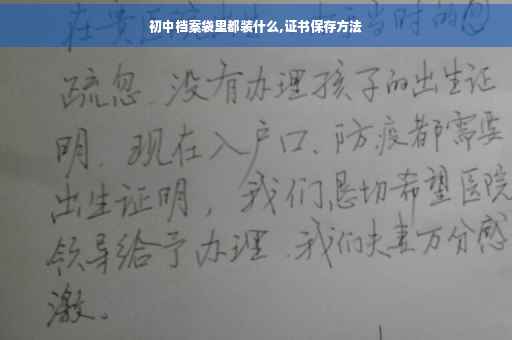 初中档案袋里都装什么,证书保存方法
当时的
疏忽、没有办理孩子的出生证
明、现在入户口、防疫都需要
出生证明，我们恳切希望医院
领导给予办理、我们夫妻万分感
激。